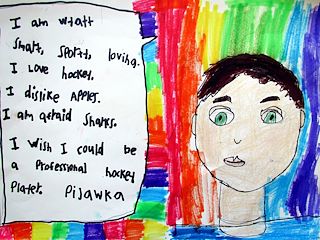 I am wyatt
Smart, sporty, loving.
I love hockey.
I dislike Apples.
I am afraid sharks.
I wish I could be
a professional hockey
player. Pijawka